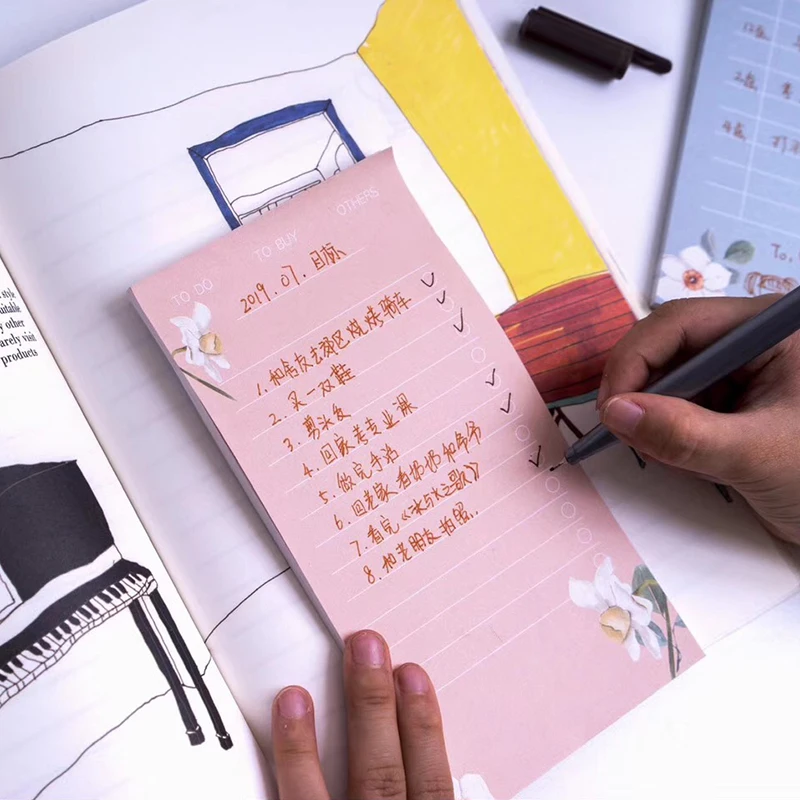 TO DO
TO BUY
OTHERS
2019.07.目标
1. 和舍友去郊区烧烤骑车
2. 买一双鞋
3. 剪头发
4. 回家考专业课
5. 做完手活
6. 回老家看奶奶和爷爷
7. 看完《冰与火之歌》
8. 和老朋友拍照..
style
suitable
y other
arely visit
products
To.